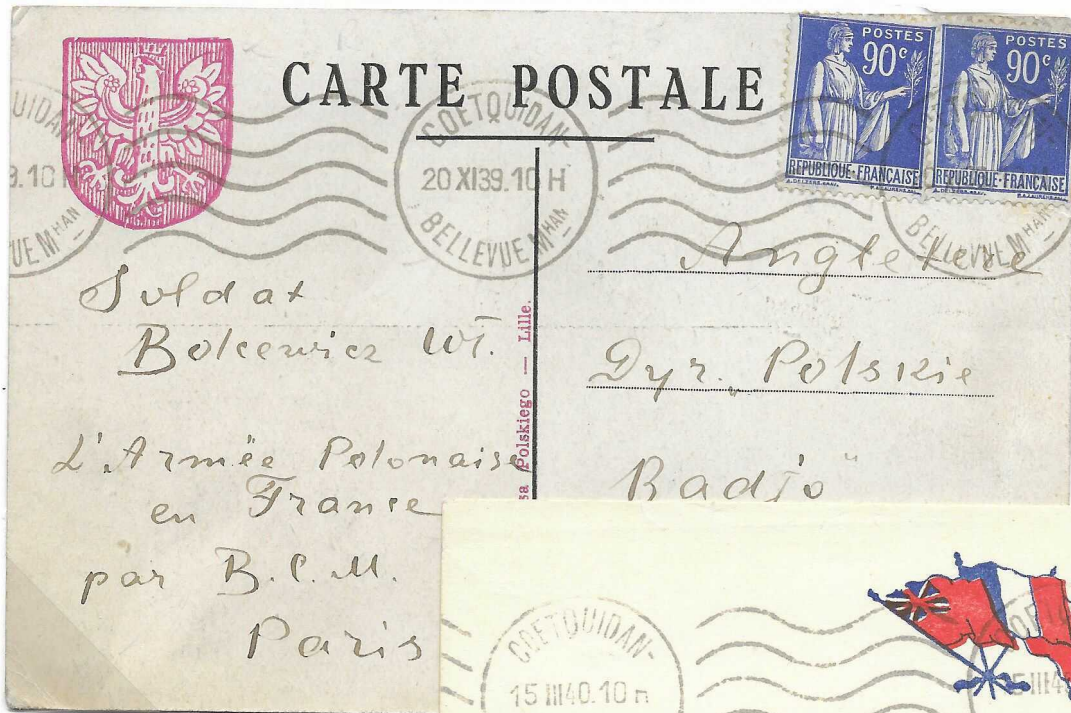 CARTE POSTALE
POSTES
90c
REPUBLIQUE-FRANÇAISE
POSTES
90c
REPUBLIQUE-FRANÇAISE
COETQUIDAN-
20 XI39.10 H
BELLEVUE MHAN
Soldat
Bolcewicz Wł.
L'Armée Polonaise
en France
par B.C.M.
Paris
Polskiego — Lille.
Angleterre
Dyr. Polskie
Radjo
COETQUIDAN-
15 III40.10